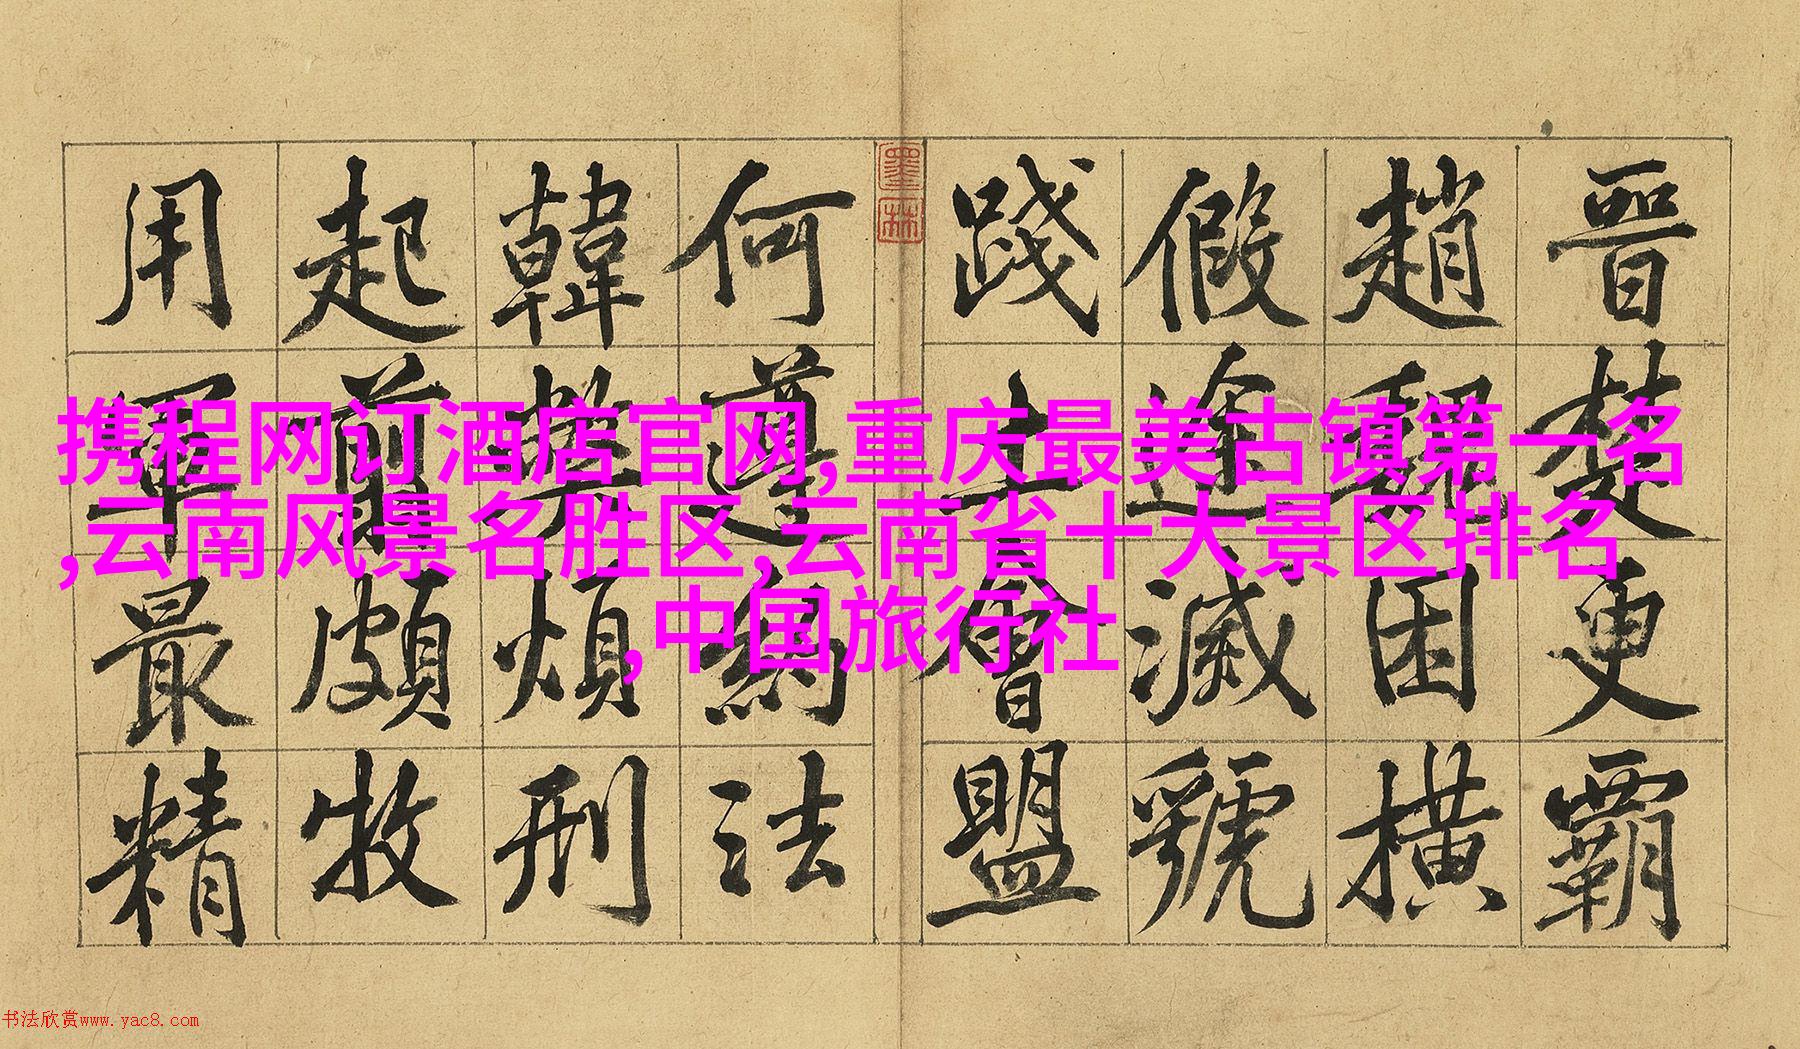 晉楚更霸
趙魏困橫
假途滅虢
踐土會盟
何遵約法
韓弊煩刑
起翦頗牧
用軍最精
墨林
携程网订酒店官网,重庆最美古镇第一名
,云南风景名胜区,云南省十大景区排名
,中国旅行社
书法欣赏www.yac8.com